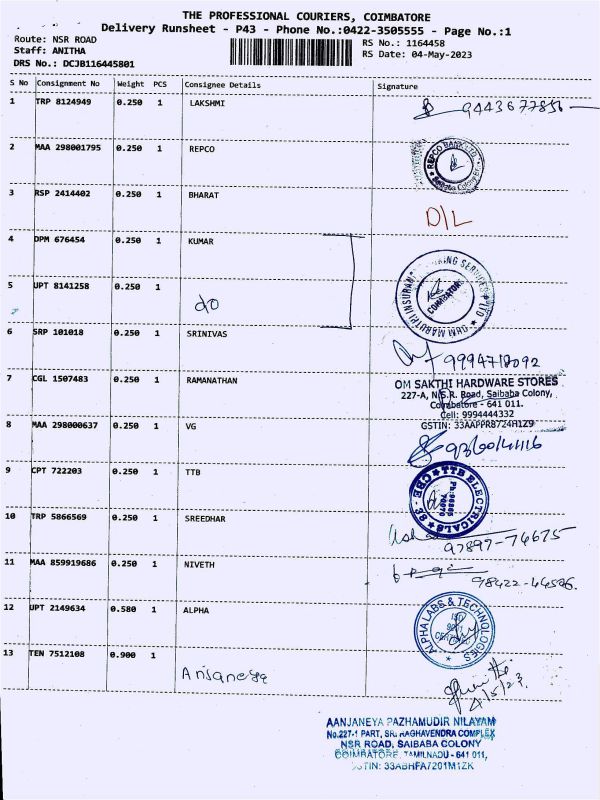 THE PROFESSIONAL COURIERS, COIMBATORE
Delivery Runsheet - P43 - Phone No.:0422-3505555 - Page No.:1
Route: NSR ROAD
Staff: ANITHA
DRS No.: DCJB116445801
RS No.: 1164458
RS Date: 04-May-2023
S No Consignment No Weight PCS Consignee Details Signature
1 TRP 8124949 0.250 1 LAKSHMI 9443677856
2 MAA 298001795 0.250 1 REPCO
REPCO BANK LTD
Saibaba Colony
3 RSP 2414402 0.250 1 BHARAT D/L
4 DPM 676454 0.250 1 KUMAR
5 UPT 8141258 0.250 1 do
COIMBATORE
6 SRP 101018 0.250 1 SRINIVAS
7 CGL 1507483 0.250 1 RAMANATHAN
OM SAKTHI HARDWARE STORES
227-A, N.S.R. Road, Saibaba Colony,
Coimbatore - 641 011.
Cell: 9994444332
8 MAA 298000637 0.250 1 VG
9 CPT 722203 0.250 1 TTB
TTB ELECTRICALS
10 TRP 5866569 0.250 1 SREEDHAR
97897-74675
11 MAA 859919686 0.250 1 NIVETH
12 UPT 2149634 0.580 1 ALPHA
ALPHA LABS & TECHNOLOGIES
13 TEN 7512108 0.900 1
4/5/23
AANJANEYA PAZHAMUDIR NILAYAM
No.227-1 PART, SRI RAGHAVENDRA COMPLEX
NSR ROAD, SAIBABA COLONY
COIMBATORE, TAMILNADU - 641 011,
GSTIN: 33ABHFA7201M1ZK